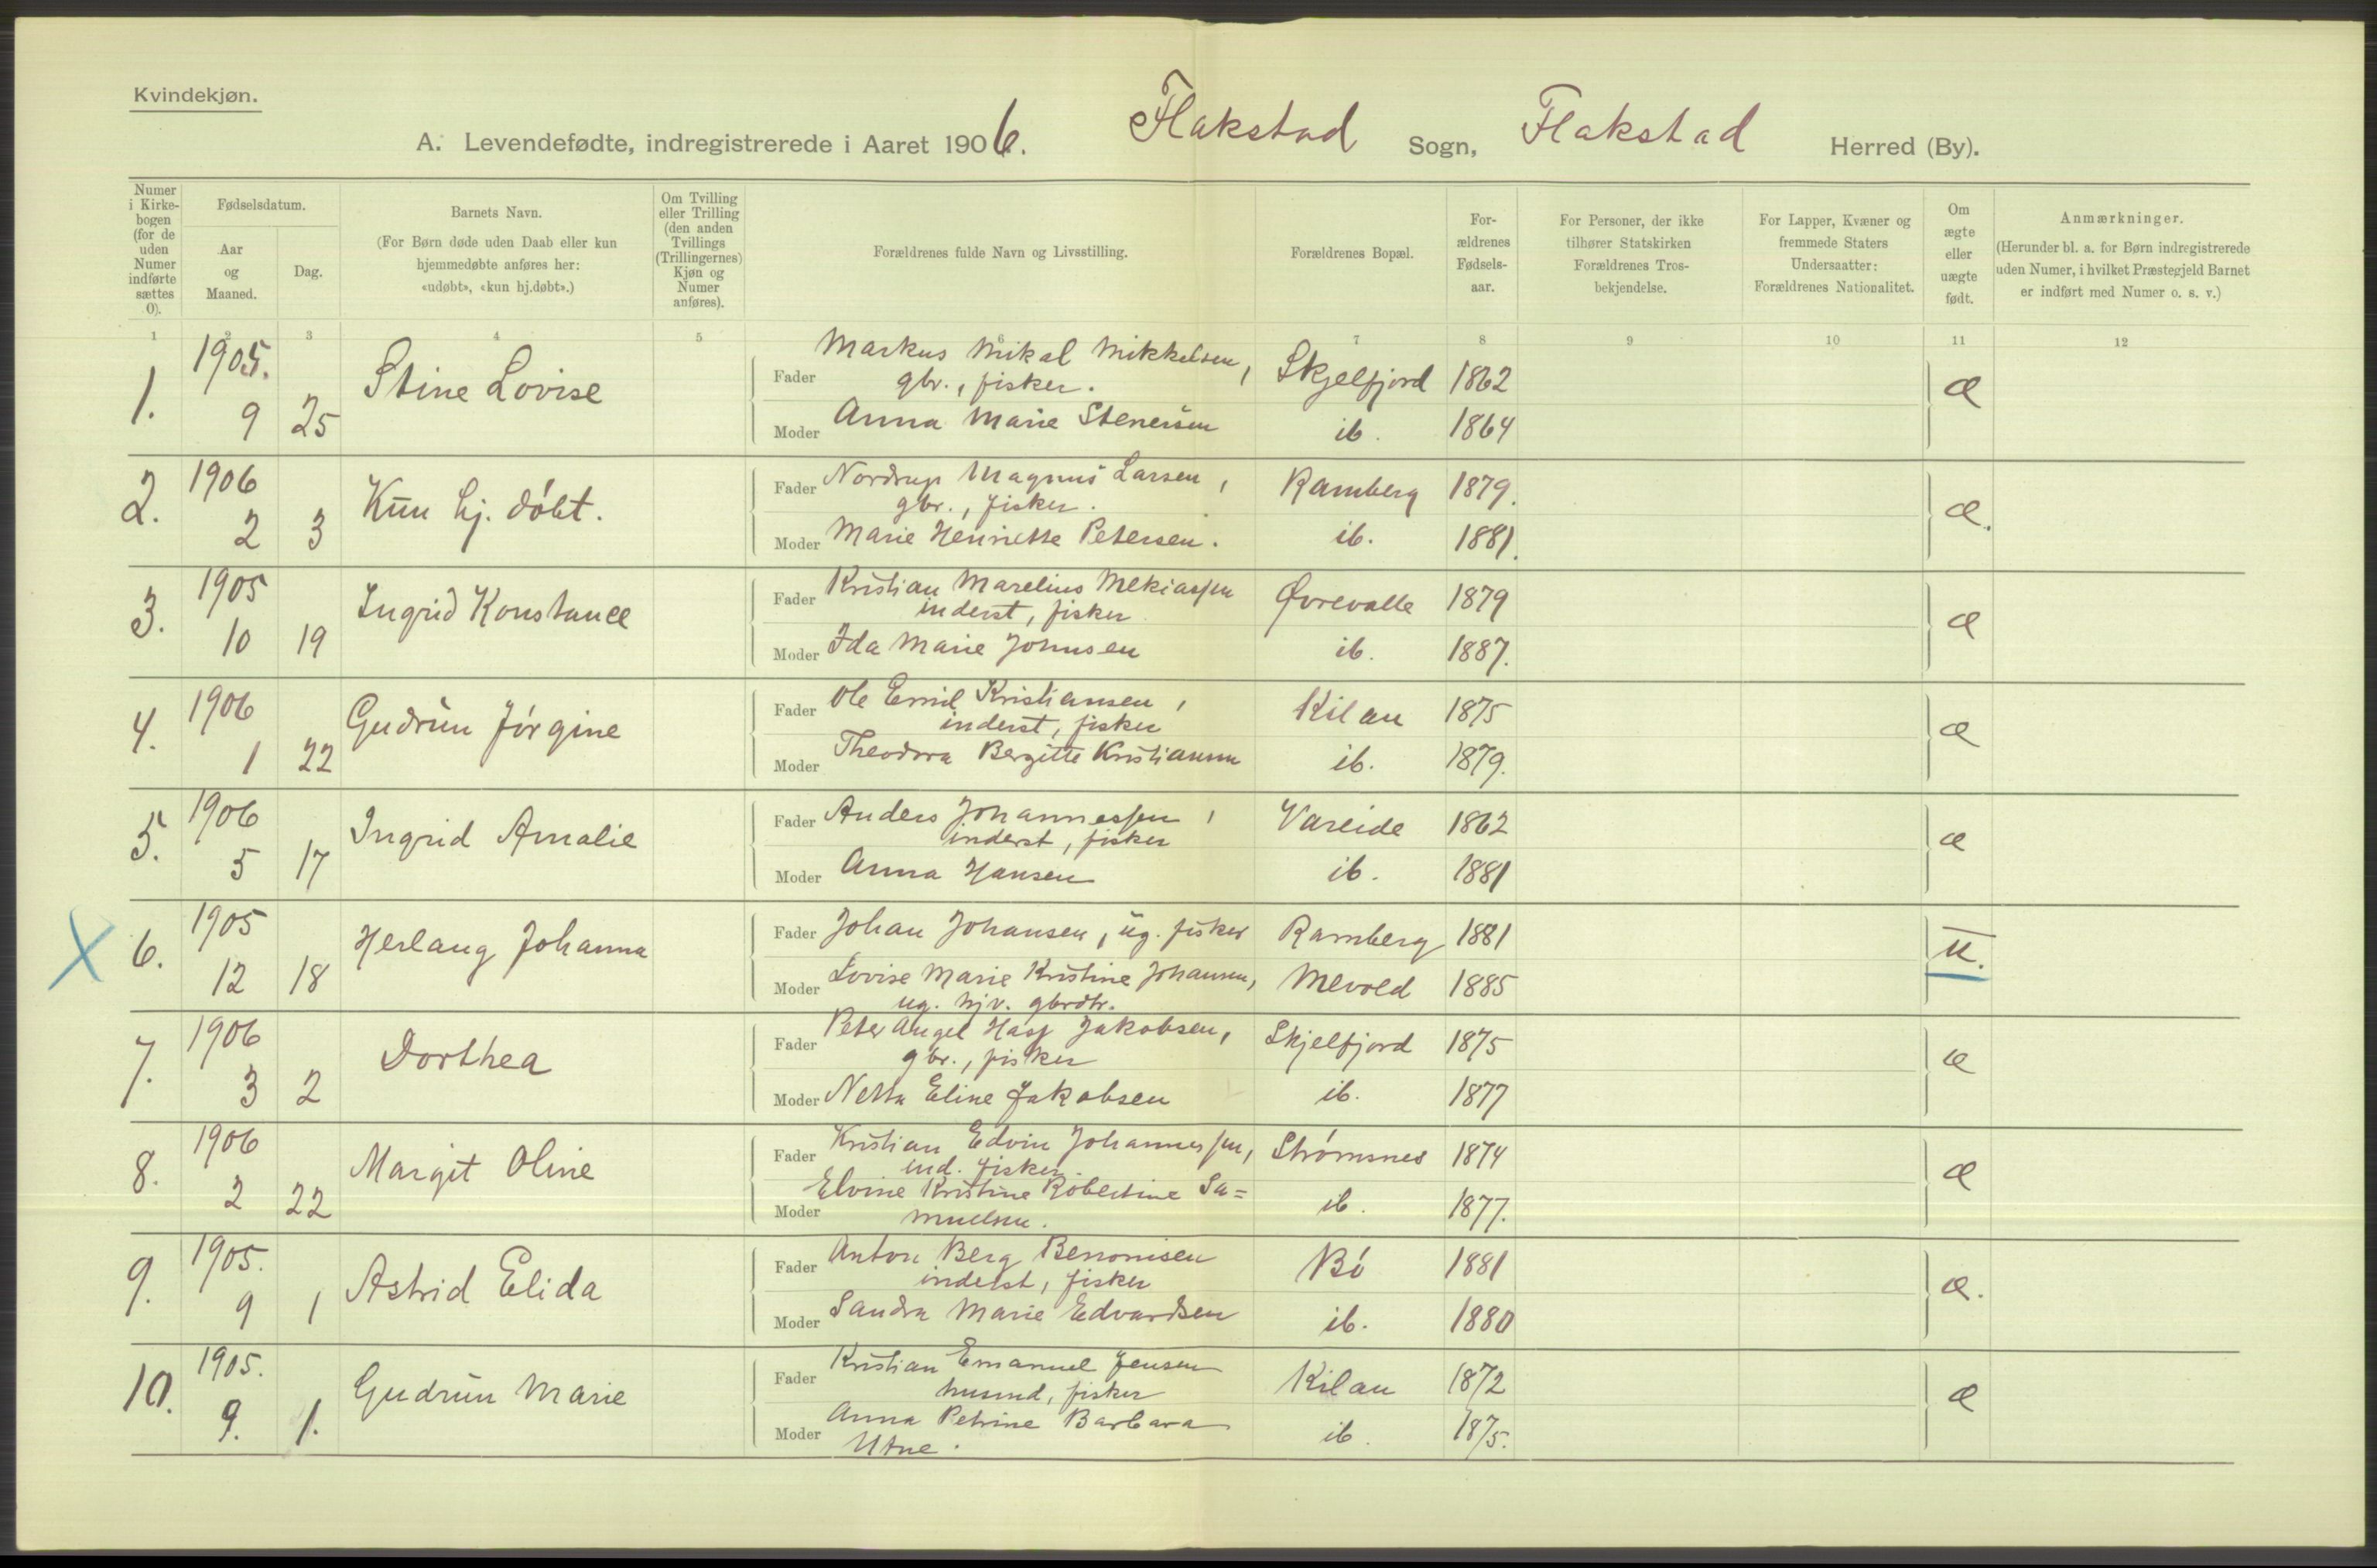 Kvindekjøn.
A. Levendefødte, indregistrerede i Aaret 1906. Flakstad Sogn, Flakstad Herred (By).
Numer i Kirkebogen (for de uden Numer indførte sættes 0).
Fødselsdatum.
Aar og Maaned.
Dag.
Barnets Navn.
(For Børn døde uden Daab eller kun hjemmedøbte anføres her: «udøbt», «kun hj.døbt».)
Om Tvilling eller Trilling (den anden Tvillings (Trillingernes) Kjøn og Numer anføres).
Forældrenes fulde Navn og Livsstilling.
Forældrenes Bopæl.
For-ældrenes Fødsels-aar.
For Personer, der ikke tilhører Statskirken Forældrenes Tros-bekjendelse.
For Lapper, Kvæner og fremmede Staters Undersaatter: Forældrenes Nationalitet.
Om ægte eller uægte født.
Anmærkninger.
(Herunder bl. a. for Børn indregistrerede uden Numer, i hvilket Præstegjeld Barnet er indført med Numer o. s. v.)
1 2 3 4 5 6 7 8 9 10 11 12
1. 1905. 9 25 Stine Lovise
Fader Markus Mikal Mikkelsen, gbr., fisker. Skjelfjord 1862 æ
Moder Anna Marie Stenersen ib. 1864
2. 1906 2 3 Kun hj. døbt.
Fader Nordrup Magnus Larsen, gbr., fisker. Ramberg 1879. æ.
Moder Marie Henriette Petersen. ib. 1881.
3. 1905 10 19 Ingrid Konstance
Fader Kristian Marelius Mekiassen inderst, fisker Øvrevalle 1879 æ
Moder Ida Marie Johnsen ib. 1887.
4. 1906 1 22 Gudrun Jørgine
Fader Ole Emil Kristiansen, inderst, fisker Kilan 1875 æ
Moder Theodora Bergitte Kristiansen ib. 1879.
5. 1906 5 17 Ingrid Amalie
Fader Anders Johannessen, inderst, fisker Vareide 1862 æ
Moder Anna Hansen ib. 1881
X 6. 1905 12 18 Herlaug Johanna
Fader Johan Johansen, ug. fisker Ramberg 1881 u.
Moder Lovise Marie Kristine Johansen, ug. hjv. gbrdtr. Mevold 1885
7. 1906 3 2 Dorthea
Fader Peter Angel Jakobsen, gbr., fisker Skjelfjord 1875 æ
Moder Netta Eline Jakobsen ib. 1877
8. 1906 2 22 Margit Oline
Fader Kristian Edvin Johannessen, ind. fisker. Strømsnes 1874 æ
Moder Elvine Kristine Robertine Sa=
muelsen. ib. 1877.
9. 1905. 9 1 Astrid Elida
Fader Anton Berg Benonisen inderst, fisker Bø 1881 æ.
Moder Sandra Marie Edvardsen ib. 1880
10. 1905. 9. 1. Gudrun Marie
Fader Kristian Emanuel Jensen husmd, fisker Kilan 1872 æ
Moder Anna Petrine Barbara
Utne. ib. 1875.